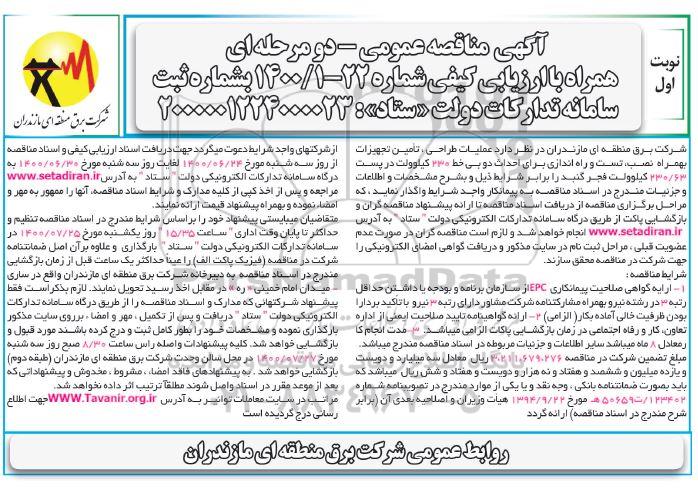 آگهی مناقصه عمومی – دو مرحله ای
همراه با ارزیابی کیفی شماره ۲۲-۱۴۰۰/۱ بشماره ثبت
سامانه تدارکات دولت «ستاد»: ۲۰۰۰۰۰۱۲۲۴۰۰۰۰۲۳
نوبت
اول
شرکت برق منطقه ای مازندران
شرکت برق منطقه ای مازندران در نظر دارد عملیات طراحی ، تأمین تجهیزات
بهمراه نصب، تست و راه اندازی برای احداث دو بی خط ۲۳۰ کیلوولت در پست
۲۳۰/۶۳ کیلوولت فجر گنبد را برابر شرایط ذیل و بشرح مشخصات و اطلاعات
و جزییات مندرج در اسناد مناقصه به پیمانکار واجد شرایط واگذار نمایند ، که
مراحل برگزاری مناقصه از دریافت اسناد مناقصه تا ارائه پیشنهاد مناقصه گران و
بازگشایی پاکت از طریق درگاه سامانه تدارکات الکترونیکی دولت " ستاد " به آدرس
www.setadiran.ir انجام خواهد شد و لازم است مناقصه گران در صورت عدم
عضویت قبلی ، مراحل ثبت نام در سایت مذکور و دریافت گواهی امضای الکترونیکی را
جهت شرکت در مناقصه محقق سازند.
شرایط مناقصه :
۱- ارایه گواهی صلاحیت پیمانکاری EPC از سازمان برنامه و بودجه یا داشتن حداقل
رتبه ۳ در رشته نیرو بهمراه مشارکتنامه شرکت مشاور دارای رتبه ۳ نیرو با تاکید بر دارا
بودن ظرفیت خالی آماده بکار (الزامی) ۲- ارائه گواهینامه تایید صلاحیت ایمنی از اداره
تعاون، کار و رفاه اجتماعی در زمان بازگشایی پاکات الزامی میباشد. ۳- مدت انجام کا
رمعادل ۸ ماه میباشد سایر اطلاعات و جزئیات مربوطه در اسناد مناقصه مندرج میباشد.
مبلغ تضمین شرکت در مناقصه ۲۰۲۱۱.۶۷۹.۲۷۶ ریال معادل ده میلیارد و دویست
و یازده میلیون و ششصد و هفتاد و نه هزار و دویست و هفتاد و شش ریال میباشد که
باید بصورت ضمانتنامه بانکی ، وجه نقد و یا یکی از موارد مندرج در تصویبنامه شماره
۱۲۳۴۰۲/ت۵۰۶۵۹ هـ مورخ ۱۳۹۴/۹/۲۲ هیأت وزیران و اصلاحیه بعدی آن (برابر
شرح مندرج در اسناد مناقصه) ارائه گردد
از شرکتهای واجد شرایط دعوت میگردد جهت دریافت اسناد ارزیابی کیفی و اسناد مناقصه
از روز سه شنبه مورخ ۱۴۰۰/۰۶/۲۴ لغایت روز سه شنبه مورخ ۱۴۰۰/۰۶/۳۰ به
درگاه سامانه تدارکات الکترونیکی دولت " ستاد " به آدرس www.setadiran.ir
مراجعه و پس از اخذ کپی از کلیه مدارک و شرایط اسناد مناقصه، آنها را ممهور به مهر و
امضاء نموده و بهمراه پیشنهاد قیمت ارائه نمایند.
متقاضیان میبایستی پیشنهاد خود را براساس شرایط مندرج در اسناد مناقصه تنظیم و
حداکثر تا پایان وقت اداری " ساعت ۱۵/۳۵ روز یکشنبه مورخ ۱۴۰۰/۰۷/۲۵ در
سامانه تدارکات الکترونیکی دولت " ستاد " بارگذاری و علاوه بر آن اصل ضمانتنامه
شرکت در مناقصه (فیزیک پاکت الف) را عینا حداکثر یک ساعت قبل از زمان بازگشایی
مندرج در اسناد مناقصه به دبیرخانه شرکت برق منطقه ای مازندران واقع در ساری
– میدان امام خمینی «ره » در مقابل اخذ رسید تحویل نمایند. لازم بذکر است فقط
پیشنهاد شرکتهایی که مدارک و اسناد مناقصه را از طریق درگاه سامانه تدارکات
الکترونیکی دولت " ستاد " دریافت و پس از تکمیل ، مهر و امضاء ، برروی سایت مذکور
بارگذاری نموده و مشخصات خود را بطور کامل ثبت و درج کرده باشند مورد قبول و
بازگشایی خواهد شد. کلیه پیشنهادات واصله راس ساعت ۸/۳۰ صبح روز سه شنبه
مورخ ۱۴۰۰/۰۷/۲۷ در محل سالن وحدت شرکت برق منطقه ای مازندران (طبقه دوم)
بازگشایی خواهد شد. به پیشنهادهای فاقد امضاء ، مشروط ، مخدوش و پیشنهاداتی که
بعد از موعد مقرر در اسناد واصل شوند مطلقاً ترتیب اثر داده نخواهد شد.
مراتب در سایت معاملات توانیر به آدرس www.Tavanir.org.ir جهت اطلاع
رسانی درج گردیده است
روابط عمومی شرکت برق منطقه ای مازندران